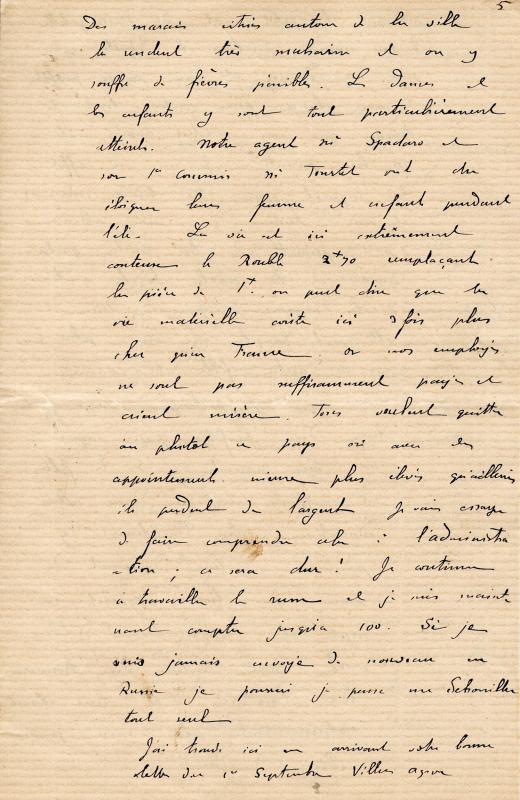 5
Des marais situés autour de la ville
la rendent très malsaine et on y
souffre de fièvres pénibles. Les dames et
les enfants y sont tout particulièrement
atteints. Notre agent Mr Spadaro et
son 1er commis Mr Tourtel ont dû
éloigner leurs femme et enfant pendant
l'été. La vie est ici extrêmement
couteuse le Rouble 2f70 remplaçant
la pièce de 1f. on peut dire que la
vie matérielle coûte ici 3 fois plus
cher qu'en France. or nos employés
ne sont pas suffisamment payés et
crient misère. Tous veulent quitter
au plutôt ce pays où avec des
appointements même plus élevés qu'ailleurs
ils perdent de l'argent. Je vais essayer
de faire comprendre cela à l'administra
-tion; ce sera dur! Je continue
à travailler le russe et je sais mainte
nant compter jusqu'à 100. Si je
suis jamais envoyé de nouveau en
Russie je pourrai je pense me débrouiller
tout seul
J'ai trouvé ici en arrivant votre bonne
lettre du 1er Septembre Villers